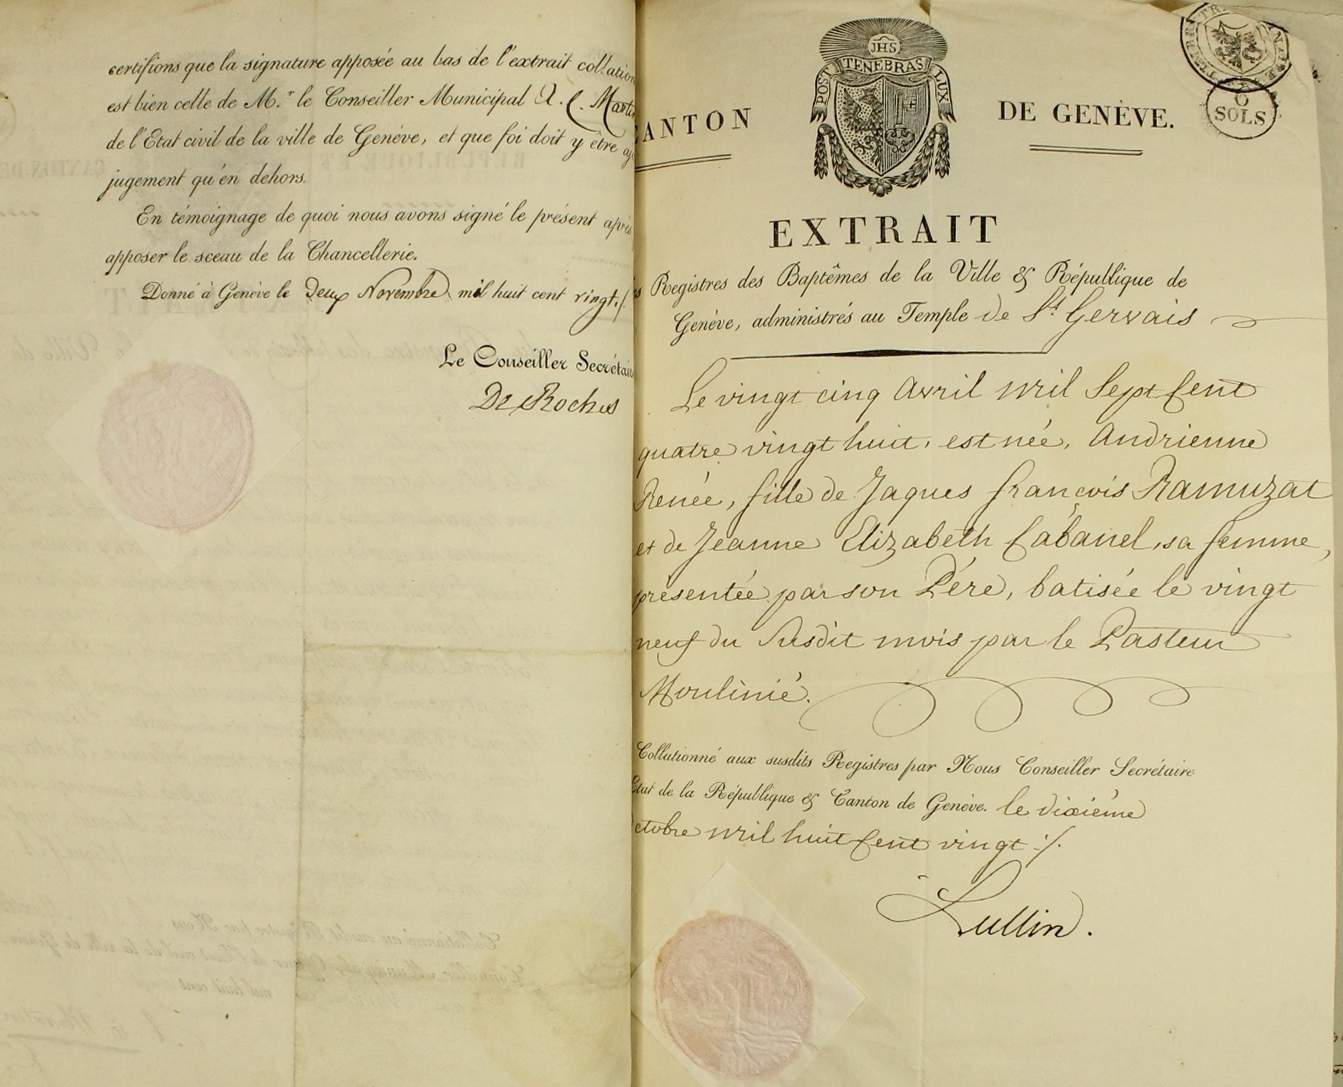 certifions que la signature apposée au bas de l'extrait collation
est bien celle de M.r le Conseiller Municipal
de l'Etat civil de la ville de Genève, et que foi doit y être
jugement qu'en dehors.
En témoignage de quoi nous avons signé le présent après
apposer le sceau de la Chancellerie.
Donné à Genève le deux Novembre mil huit cent vingt
Le Conseiller Secrétaire
De Roches
CANTON
DE GENÈVE.
POST TENEBRAS LUX
JHS
SOLS
EXTRAIT
Registres des Baptêmes de la Ville & République de
Genève, administrés au Temple de St Gervais
Le vingt cinq Avril Mil Sept Cent
quatre vingt huit, est née, Andrienne
Renée, fille de Jaques françois Ramuzat
et de Jeanne Elizabeth Cabanel, sa femme,
présentée par son Pére, batisée le vingt
neuf du susdit mois par le Pasteur
Moulinié.
Collationné aux susdits Registres par Nous Conseiller Secrétaire
Etat de la République & Canton de Genève. le dixiéme
octobre Mil huit Cent vingt ./.
Lullin.